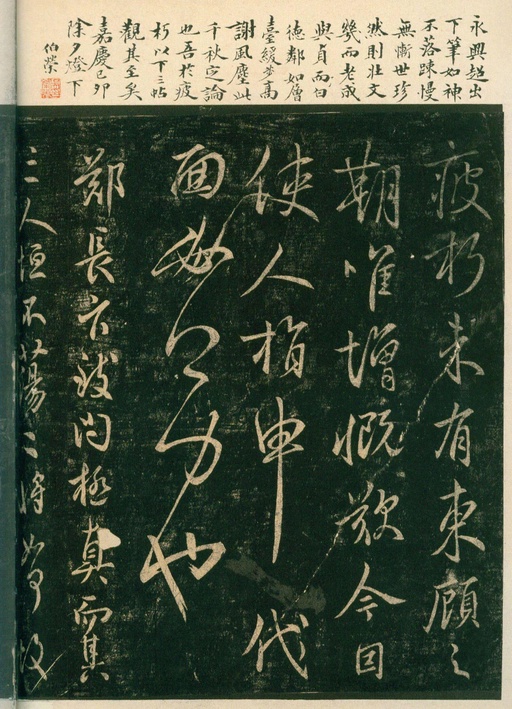 永興超出
下筆如神
不落踈慢
無慚世珍
然則壮文
幾而老成
與貞而白
德鄰如層
臺緩步高
謝風塵此
千秋定論
也吾於疲
朽以下三帖
觀其至矣
嘉慶己卯
除夕燈下
伯榮
疲朽未有東顧之
期唯增慨歎今因
使人指申代
面公力也
鄭長官致問極真而其
三人恒不蕩〻將如何故